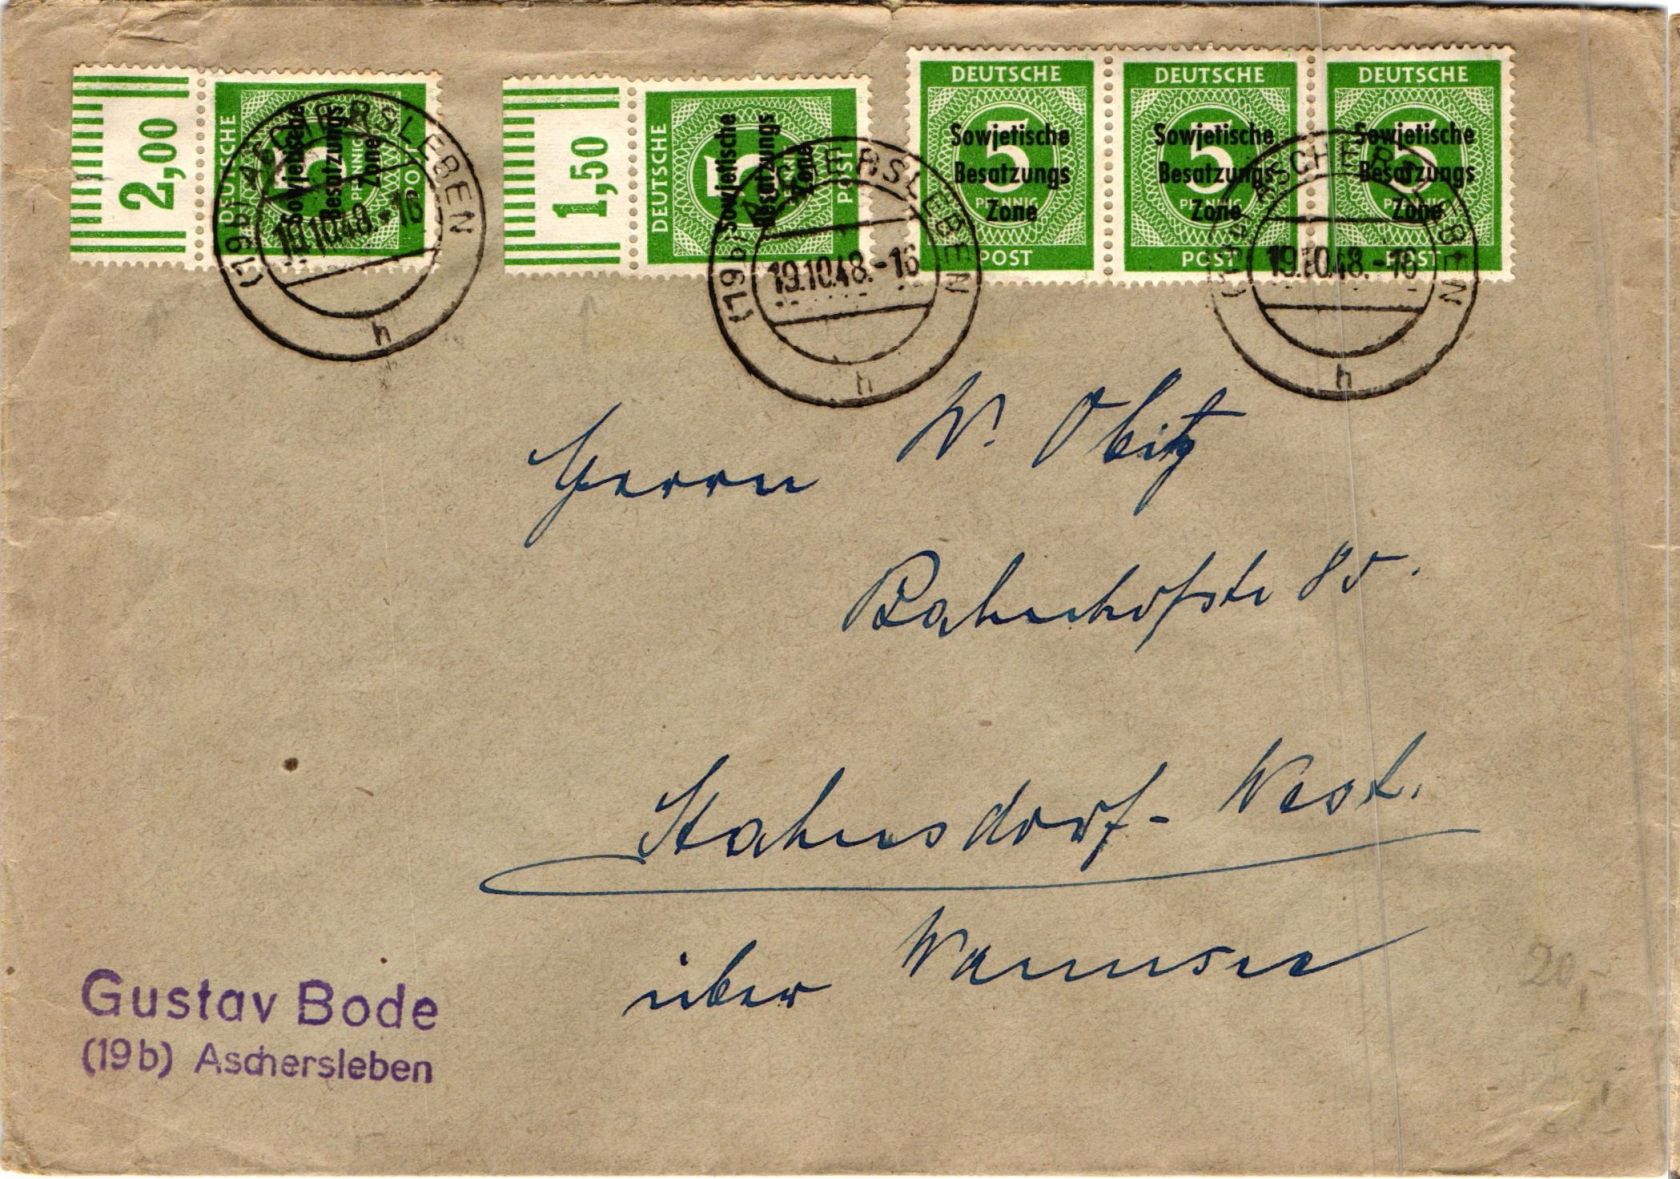 2,00
DEUTSCHE
5
PFENNIG
POST
Sowjetische
Besatzungs
Zone
(19b) ASCHERSLEBEN
19.10.48.-16
h
1,50
DEUTSCHE
5
PFENNIG
POST
Sowjetische
Besatzungs
Zone
(19b) ASCHERSLEBEN
19.10.48.-16
h
DEUTSCHE DEUTSCHE DEUTSCHE
5 5 5
PFENNIG PFENNIG PFENNIG
POST POST POST
Sowjetische Sowjetische Sowjetische
Besatzungs Besatzungs- Besatzungs
Zone Zone Zone
(19b) ASCHERSLEBEN
19.10.48.-16
h
Herrn W. Obitz
Bahnhofstr 85.
Stahnsdorf-West.
über Wannsee
Gustav Bode
(19b) Aschersleben
20,-